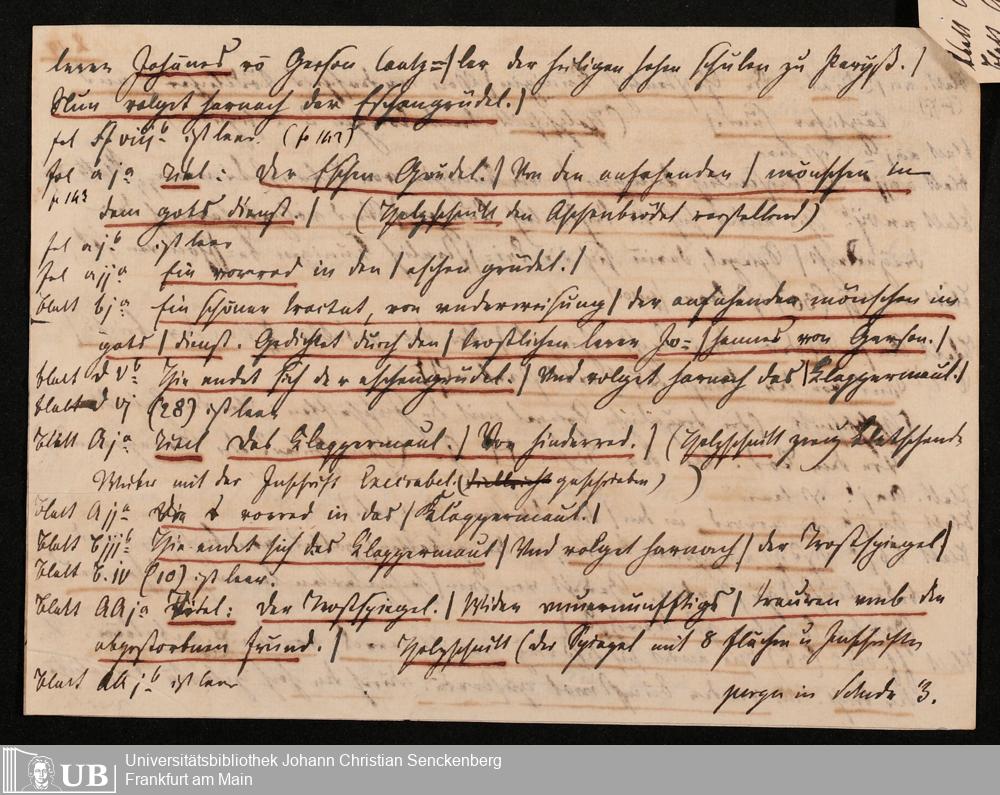 lerer Johānes vō Gerson Cantz=|ler der heiligen hohen schulen zu Paryß.|
Nun volget harnach der Eschengrüdel.|
fol ff viij b ist leer. (fo 142)
fol a j a Titel: Der Eschen Grüdel.| Von den anfahenden | mönschen in
fo 143
dem gots dienst.| (Holzschnitt den Aschenbrödel vorstellend)
fol a j b ist leer
fol a jj a Ein vorred in den | eschen grüdel.|
blatt b j a Ein schöner tractat, von underweisung | der anfahenden mönschen im
gots | dienst. Gedichtet durch den | trostlichen lerer Jo=|hannes von Gerson.|
blatt d v b Hie endet sich der eschengrüdel.| Und volget harnach das | Klappermaul.|
blatt d vj (28) ist leer
Blatt A j a Titel Das Klappermaul.| Von hinderred.| (Holzschnitt zwey klatschende
Weiber mit der Inschrift geschrieben)
blatt A jj a Die vorred in das | Klappermaul.|
blatt B jjj b Hie endet sich das Klappermaul | Und volget harnach | der Trostspiegel |
blatt B. iv (10) ist leer.
blatt AA j a Titel: Der Trostspiegel.| Widen unuernunfftigs | trauren umb den
abgestorbnen frund.| Holzschnitt (der Spiegel mit 8 Flächen u Inschriften
blatt AA j b ist leer
perge in Scheda 3.
Universitätsbibliothek Johann Christian Senckenberg
Frankfurt am Main
UB